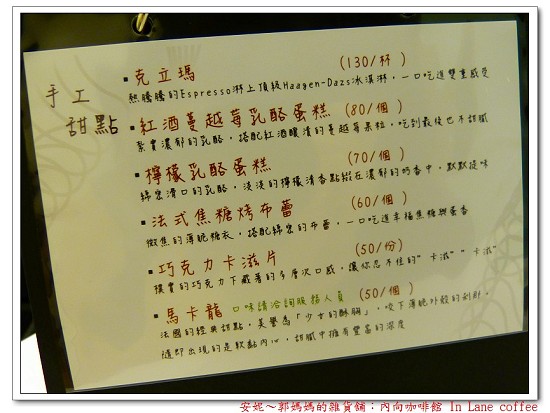 手工
甜點
▪克立瑪 (130/杯)
熱騰騰的Espresso淋上頂級Haagen-Dazs冰淇淋，一口吃進雙重感受
▪紅酒蔓越莓乳酪蛋糕 (80/個)
紮實濃郁的乳酪，搭配紅酒釀漬的蔓越莓果粒，吃到最後也不甜膩
▪檸檬乳酪蛋糕 (70/個)
綿密滑口的乳酪，淡淡的檸檬清香點綴在濃郁的奶香中，默默提味
▪法式焦糖烤布蕾 (60/個)
微焦的薄脆糖衣，搭配綿密的布蕾，一口吃進幸福焦糖與蛋香
▪巧克力卡滋片 (50/份)
樸實的巧克力下藏著的多層次口感，讓你忍不住的"卡滋""卡滋"
▪馬卡龍 口味請洽詢服務人員 (50/個)
法國的經典甜點，美譽為「少女的酥胸」，咬下薄脆外殼的剎那，
隨即出現的是軟黏內心，甜膩中擁有豐富的深度
安妮～郭媽媽的雜貨舖：內向咖啡館 In Lane coffee